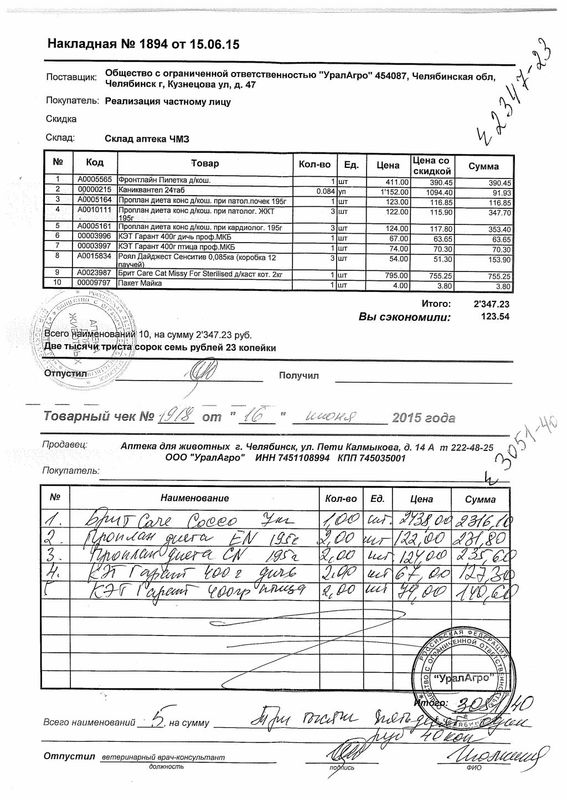 Накладная № 1894 от 15.06.15
≤ 2347-23
Поставщик: Общество с ограниченной ответственностью "УралАгро" 454087, Челябинская обл,
Челябинск г, Кузнецова ул, д. 47
Покупатель: Реализация частному лицу
Скидка
Склад: Склад аптека ЧМЗ
№ Код Товар Кол-во Ед. Цена Цена со скидкой Сумма
1 А0005565 Фронтлайн Пипетка д/кош. 1 шт 411.00 390.45 390.45
2 00000215 Каниквантел 24таб 0.084 уп 1'152.00 1094.40 91.93
3 А0005164 Проплан диета конс д/кош. при патол.почек 195г 1 шт 123.00 116.85 116.85
4 А0010111 Проплан диета конс д/кош. при патолог. ЖКТ 195г 3 шт 122.00 115.90 347.70
5 А0005161 Проплан диета конс д/кош. при кардиолог. 195г 3 шт 124.00 117.80 353.40
6 00003996 КЭТ Гарант 400г дичь проф.МКБ 1 шт 67.00 63.65 63.65
7 00003997 КЭТ Гарант 400г птица проф.МКБ 1 шт 74.00 70.30 70.30
8 А0015834 Роял Дайджест Сенситив 0,085ка (коробка 12 паучей) 3 шт 54.00 51.30 153.90
9 А0023987 Брит Care Cat Missy For Sterilised д/каст кот. 2кг 1 шт 795.00 755.25 755.25
10 00009797 Пакет Майка 1 шт 4.00 3.80 3.80
Итого: 2'347.23
Вы сэкономили: 123.54
Всего наименований 10, на сумму 2'347.23 руб.
Две тысячи триста сорок семь рублей 23 копейки
АПТЕКА ДЛЯ ЖИВОТНЫХ
Отпустил Получил
Товарный чек № 1918 от "16" июня 2015 года
≤ 3051-40
Продавец: Аптека для животных г. Челябинск, ул. Пети Калмыкова, д. 14 А т 222-48-25
ООО "УралАгро" ИНН 7451108994 КПП 745035001
Покупатель:
№ Наименование Кол-во Ед. Цена Сумма
1. Брит Care Cocco 7кг 1,00 шт. 2438.00 2316,10
2. Проплан диета EN 195г 2,00 шт 122,00 231,80
3. Проплан диета CN 195г 2,00 шт 124,00 235,60
4. КЭТ Гарант 400г дичь 2,00 шт 67,00 127,30
5 КЭТ Гарант 400гр птица 2,00 шт 74,00 140,60
РОССИЙСКАЯ ФЕДЕРАЦИЯ
"УралАгро"
Итого: 3051,40
Всего наименований 5. на сумму Три тысячи пятьдесят один
руб 40 коп
Отпустил ветеринарный врач-консультант
должность подпись ФИО